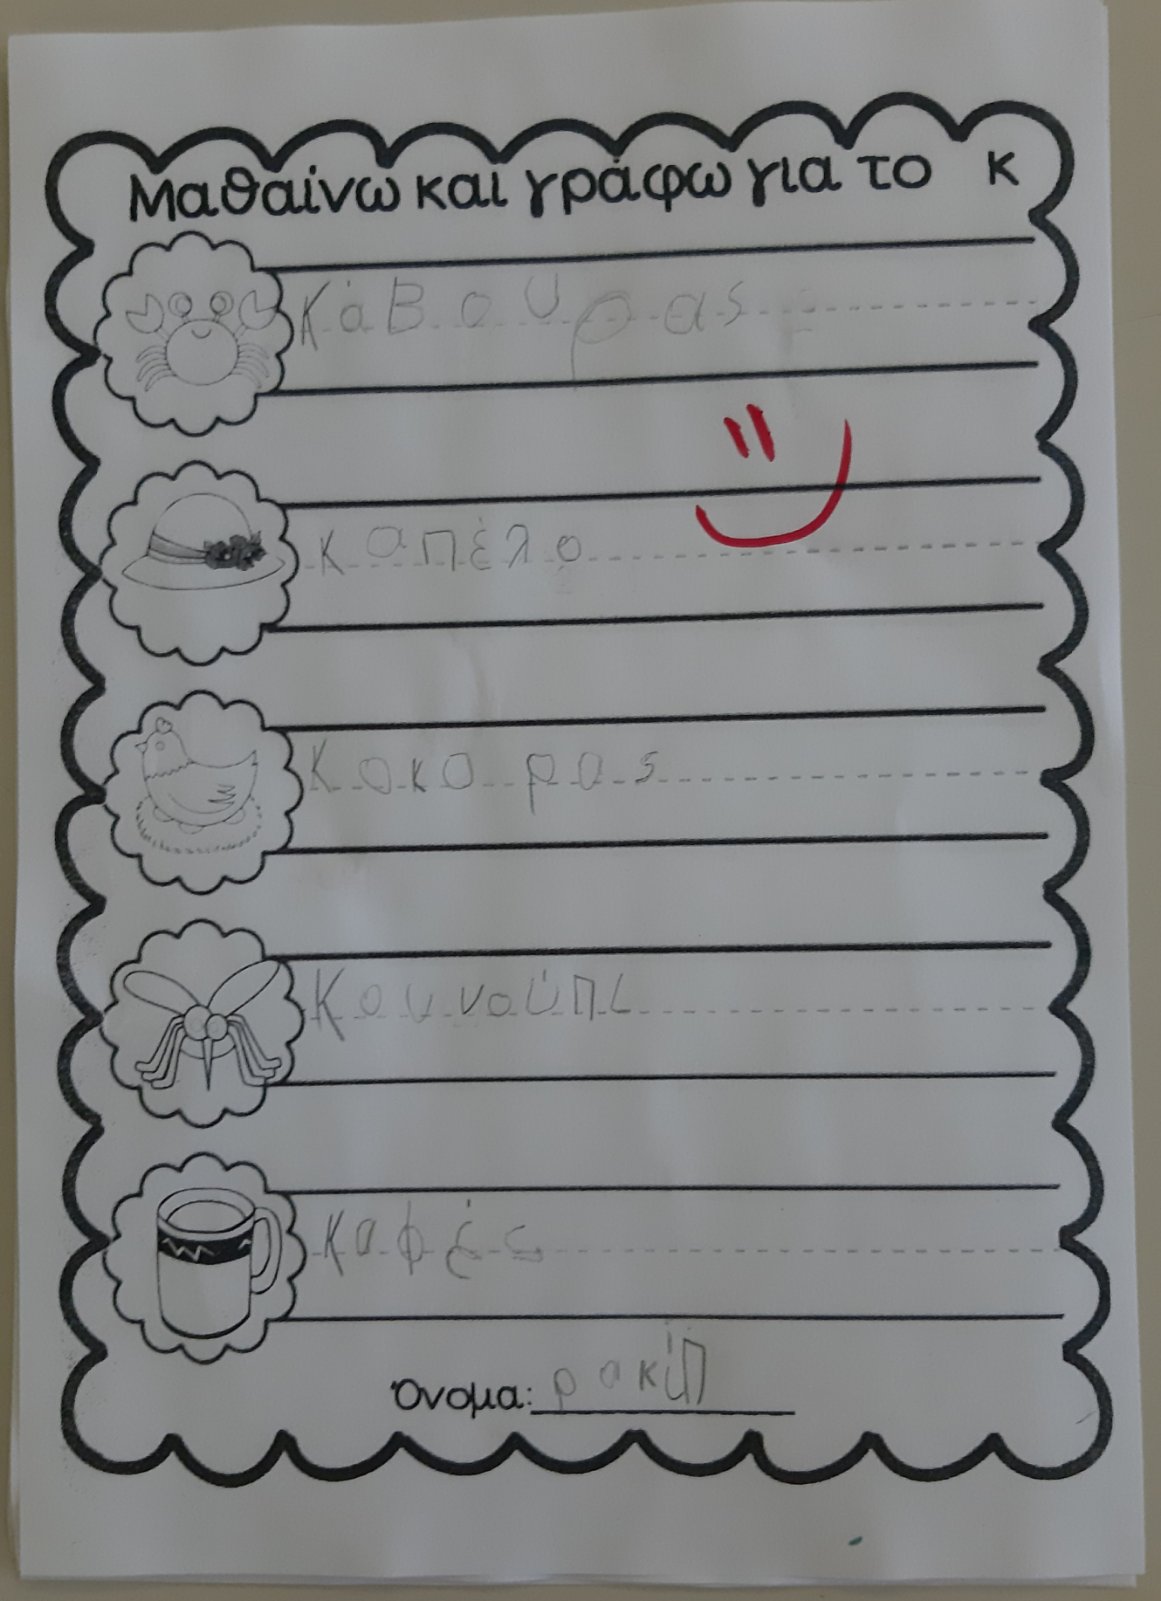 Μαθαίνω και γράφω για το κ
κάΒουρας
καπέλο
κοκορας
κουνούπι
καφές
Όνομα: ρακίπ